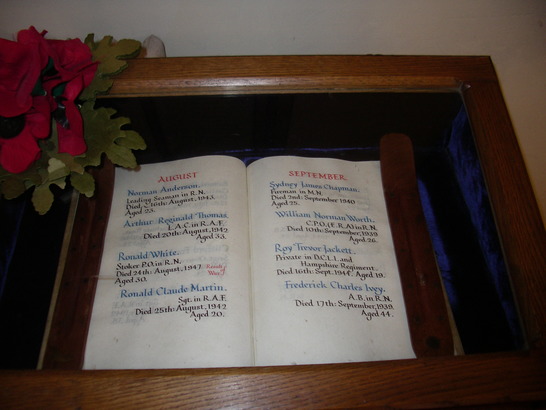 AUGUST
Norman Anderson.
Leading Seaman in R.N.
Died 16th August, 1943.
Aged 23.
Arthur Reginald Thomas.
L.A.C. in R.A.F.
Died 20th August, 1942
Aged 33.
Ronald White.
Stoker P.O. in R.N.
Died 24th August, 1947.
Aged 30.
Ronald Claude Martin.
Sgt. in R.A.F.
Died 25th August, 1942
Aged 20.
SEPTEMBER
Sydney James Chapman.
Fireman in M.N.
Died 2nd September 1940
Aged 25.
William Norman Worth.
C.P.O. (E.R.A) in R.N.
Died 10th September, 1939
Aged 26.
Roy Trevor Jackett.
Private in D.C.L.I. and
Hampshire Regiment.
Died 16th Sept. 1944. Aged 19.
Frederick Charles Ivey.
A.B. in R.N.
Died 17th September, 1939.
Aged 44.